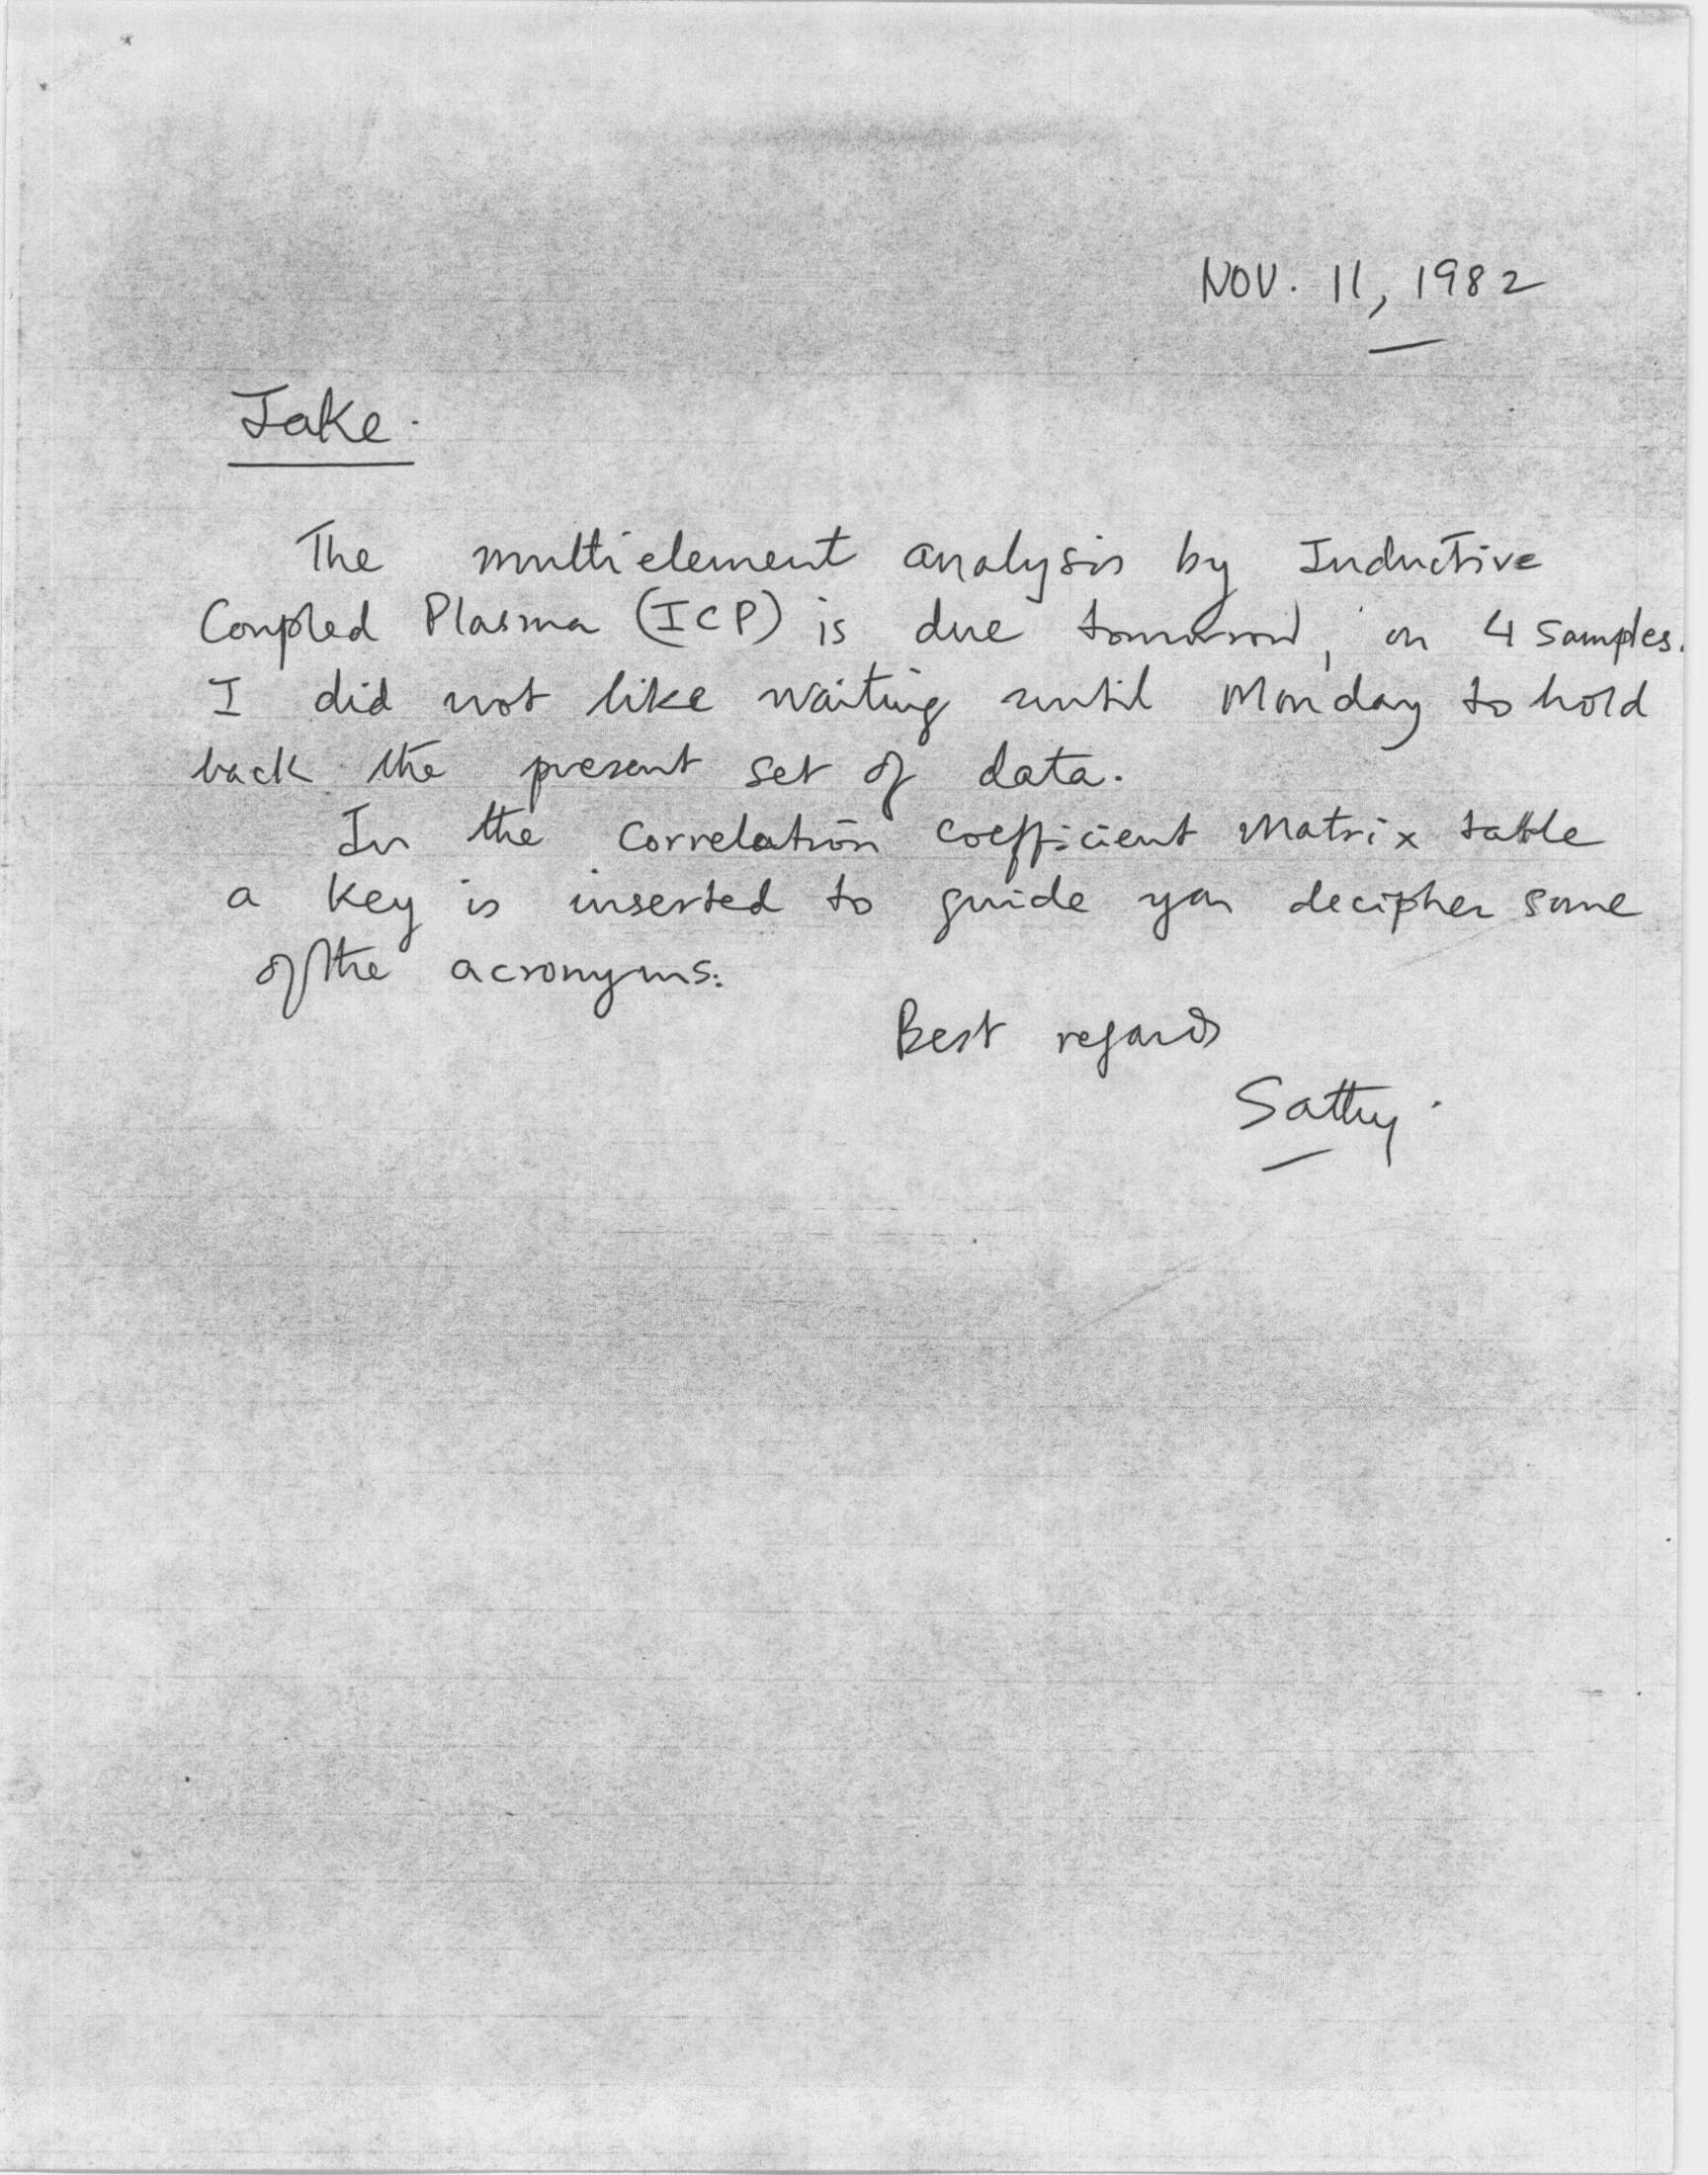 NOV. 11, 1982
Jake.
The multielement analysis by Inductive
Coupled Plasma (ICP) is due tomorrow, on 4 samples.
I did not like waiting until Monday to hold
back the present set of data.
In the Correlation coefficient Matrix table
a key is inserted to guide you decipher some
of the acronyms.
Best regards
Sathy.